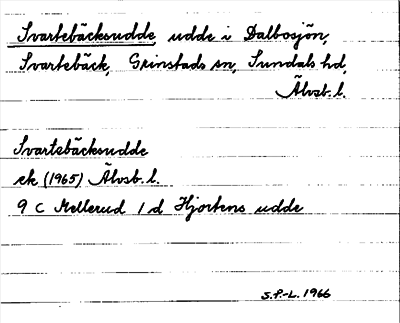 Svartebäcksudde, udde i Dalbosjön,
Svartebäck, Grinstads sn, Sundals hd,
Älvsb. l.
Svartebäcksudde
ek (1965) Älvsb. l.
9 C Mellerud 1 d Hjortens udde
S.F.-L. 1966